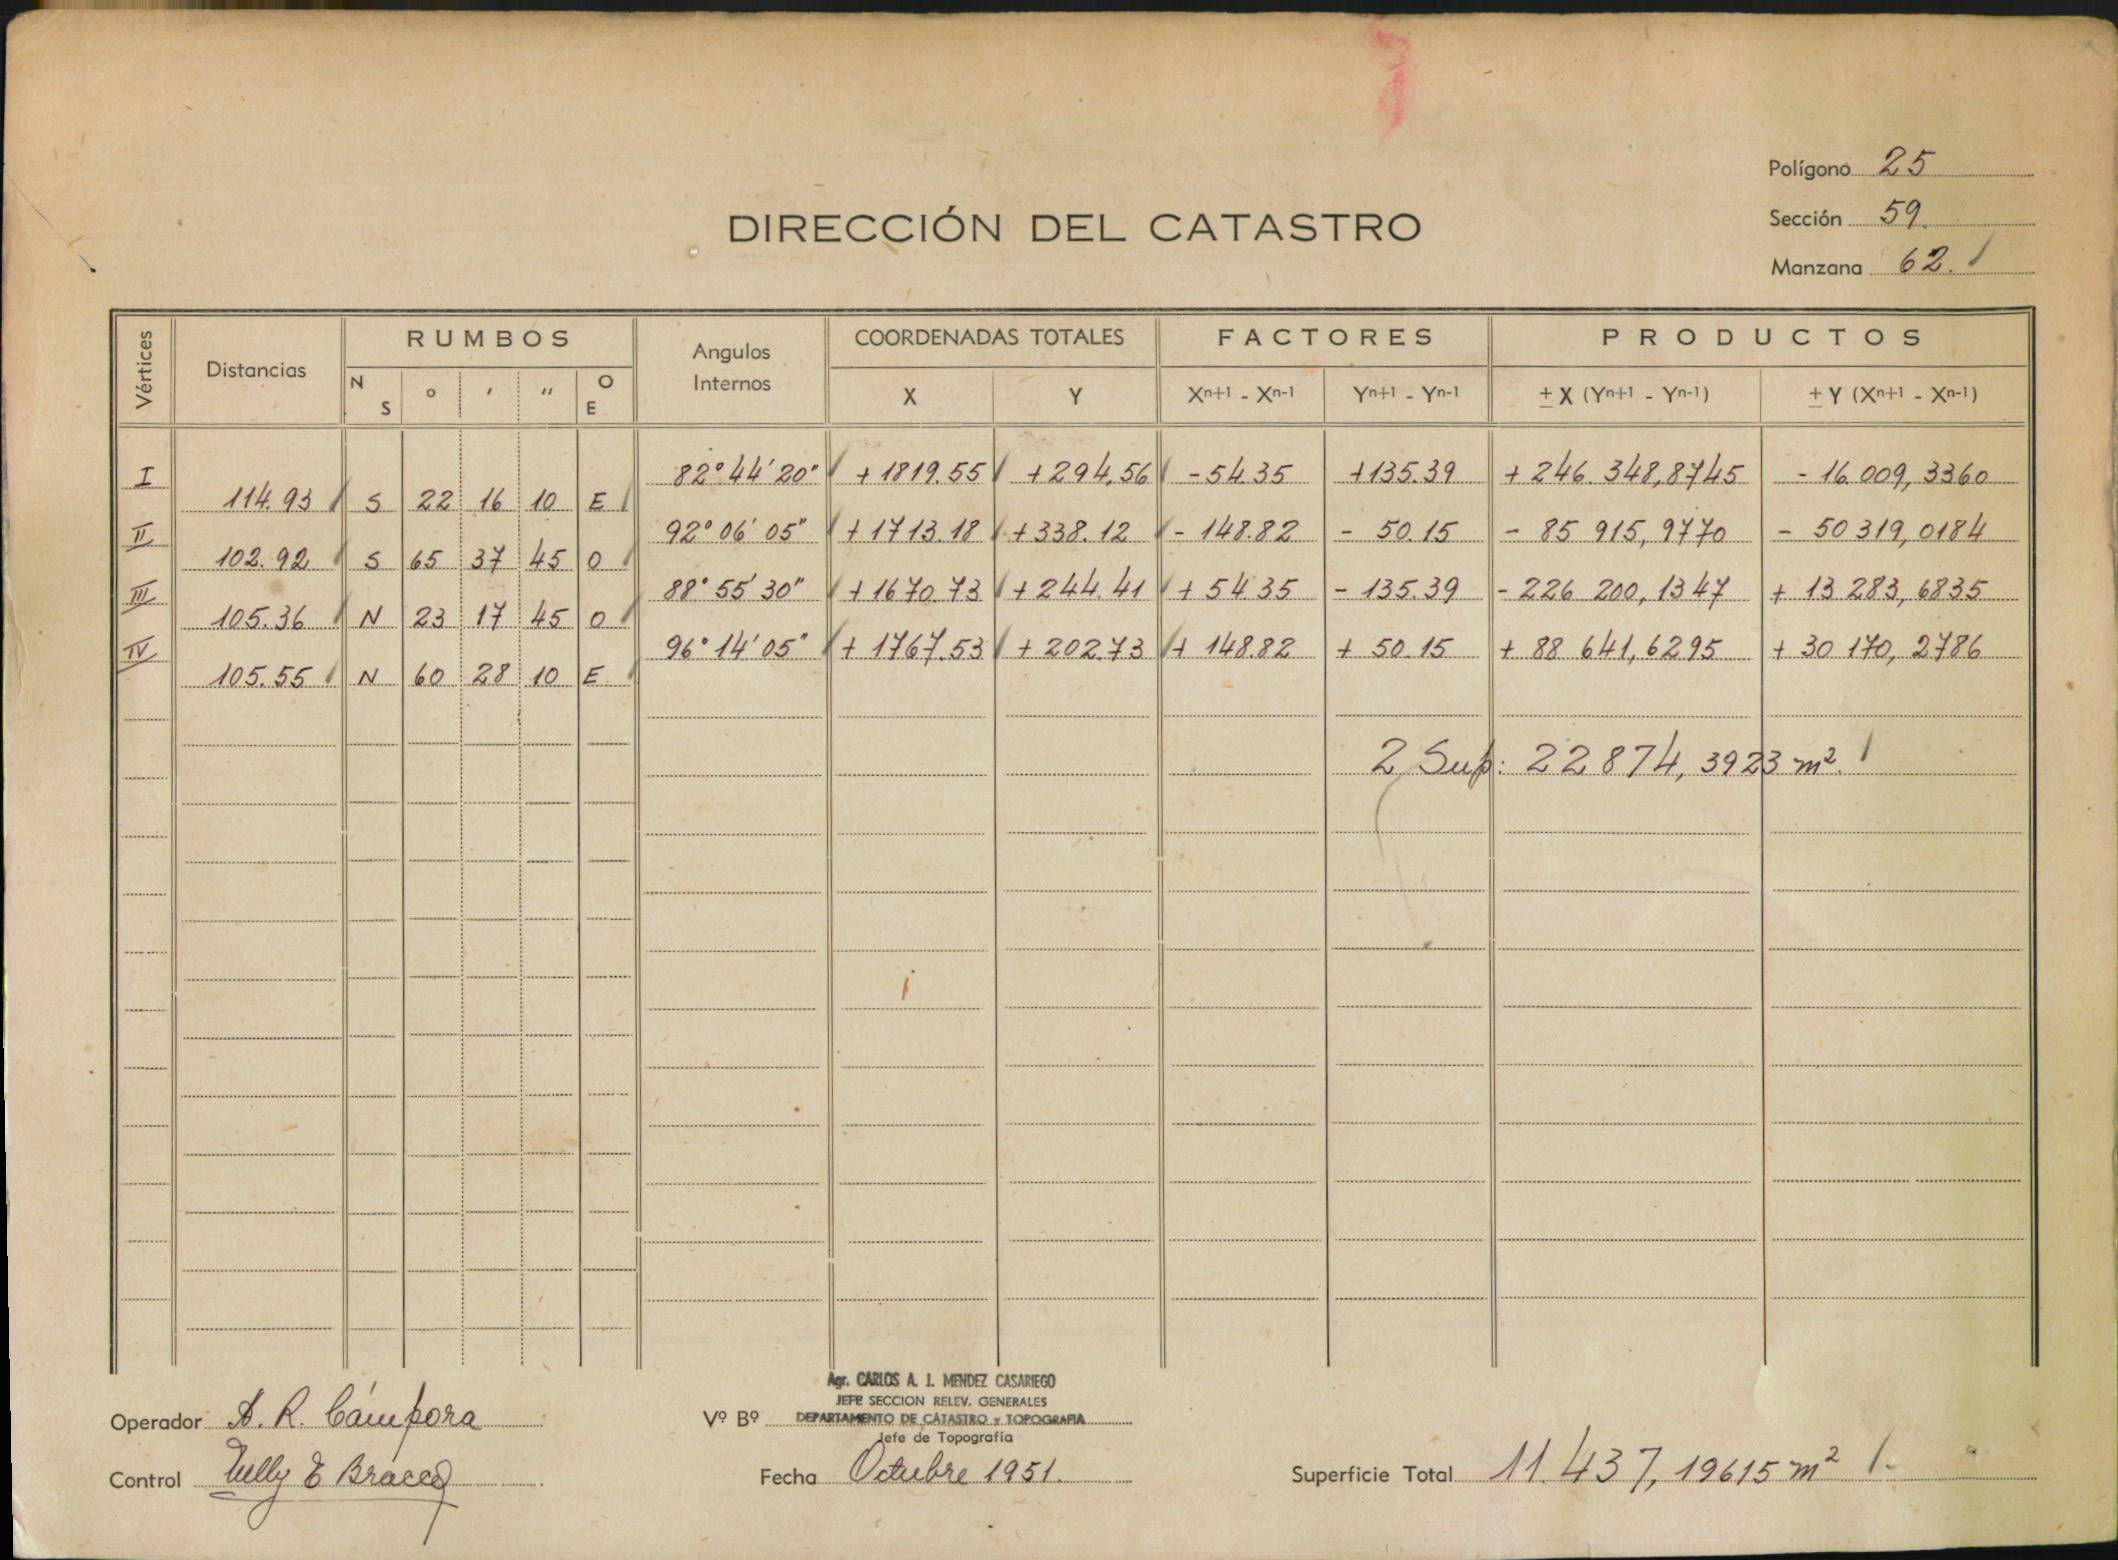 Polígono 25
Sección 59.
DIRECCIÓN DEL CATASTRO
Manzana 62.
Vértices Distancias RUMBOS Angulos Internos COORDENADAS TOTALES FACTORES PRODUCTOS
N S ° ′ ″ O E X Y Xn+1 - Xn-1 Yn+1 - Yn-1 ± X (Yn+1 - Yn-1) ± Y (Xn+1 - Xn-1)
I 82° 44′ 20″ + 1819.55 + 294.56 - 54.35 + 135.39 + 246.348,8745 - 16.009,3360
114.93 S 22 16 10 E
II 92° 06′ 05″ + 1713.18 + 338.12 - 148.82 - 50.15 - 85 915,9770 - 50 319,0184
102.92 S 65 37 45 O
III 88° 55′ 30″ + 1670.73 + 244.41 + 54.35 - 135.39 - 226 200,1347 + 13 283,6835
105.36 N 23 17 45 O
IV 96° 14′ 05″ + 1767.53 + 202.73 + 148.82 + 50.15 + 88 641,6295 + 30 170,2786
105.55 N 60 28 10 E
2 Sup: 22874,3923 m².
Agr. CARLOS A. J. MENDEZ CASARIEGO
JEFE SECCION RELEV. GENERALES
Operador A. R. Cámpora Vº Bº DEPARTAMENTO DE CATASTRO y TOPOGRAFIA
Jefe de Topografía
Control E Fecha Octubre 1951. Superficie Total 11.437,19615 m²